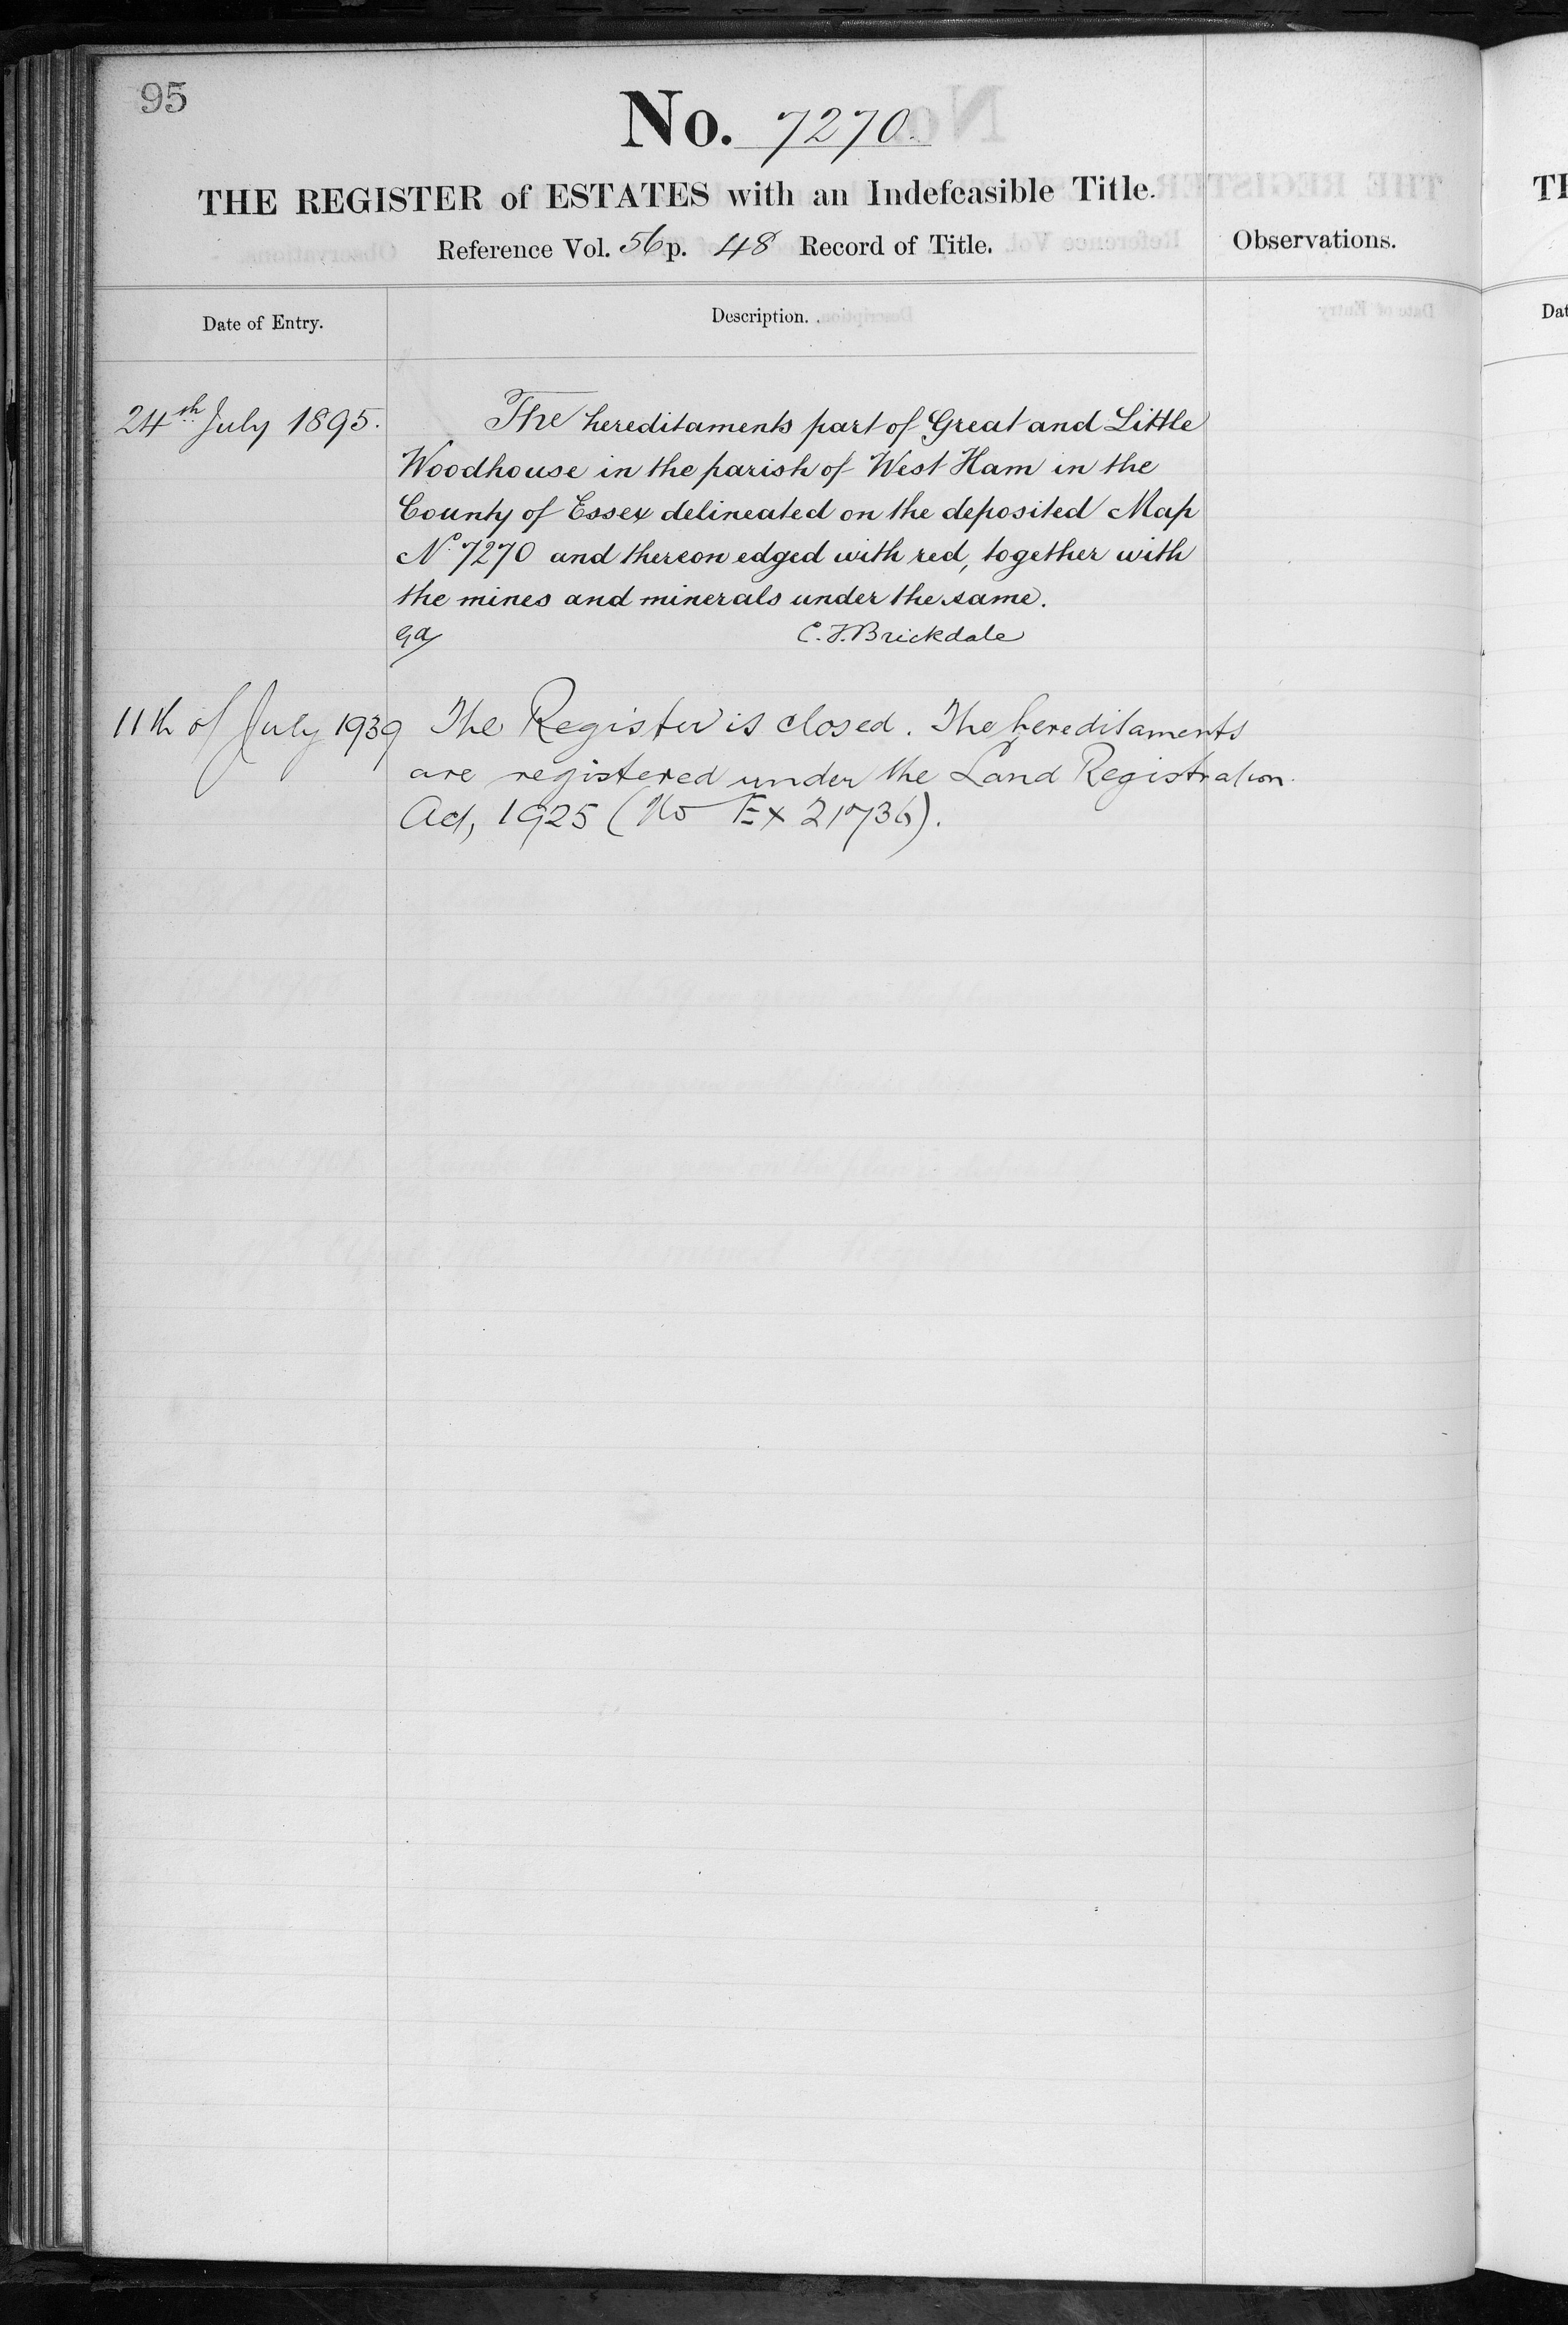 95
No. 7270.
THE REGISTER of ESTATES with an Indefeasible Title.
Reference Vol. 56 p. 48 Record of Title.
Observations.
Date of Entry.
Description.
24th July 1895.
The hereditaments part of Great and Little
Woodhouse in the parish of West Ham in the
County of Essex delineated on the deposited Map
No. 7270 and thereon edged with red, together with
the mines and minerals under the same.
C. F. Brickdale
11th of July 1939 The Register is closed. The hereditaments
are registered under the Land Registration
Act, 1925 (No Ex 21736).